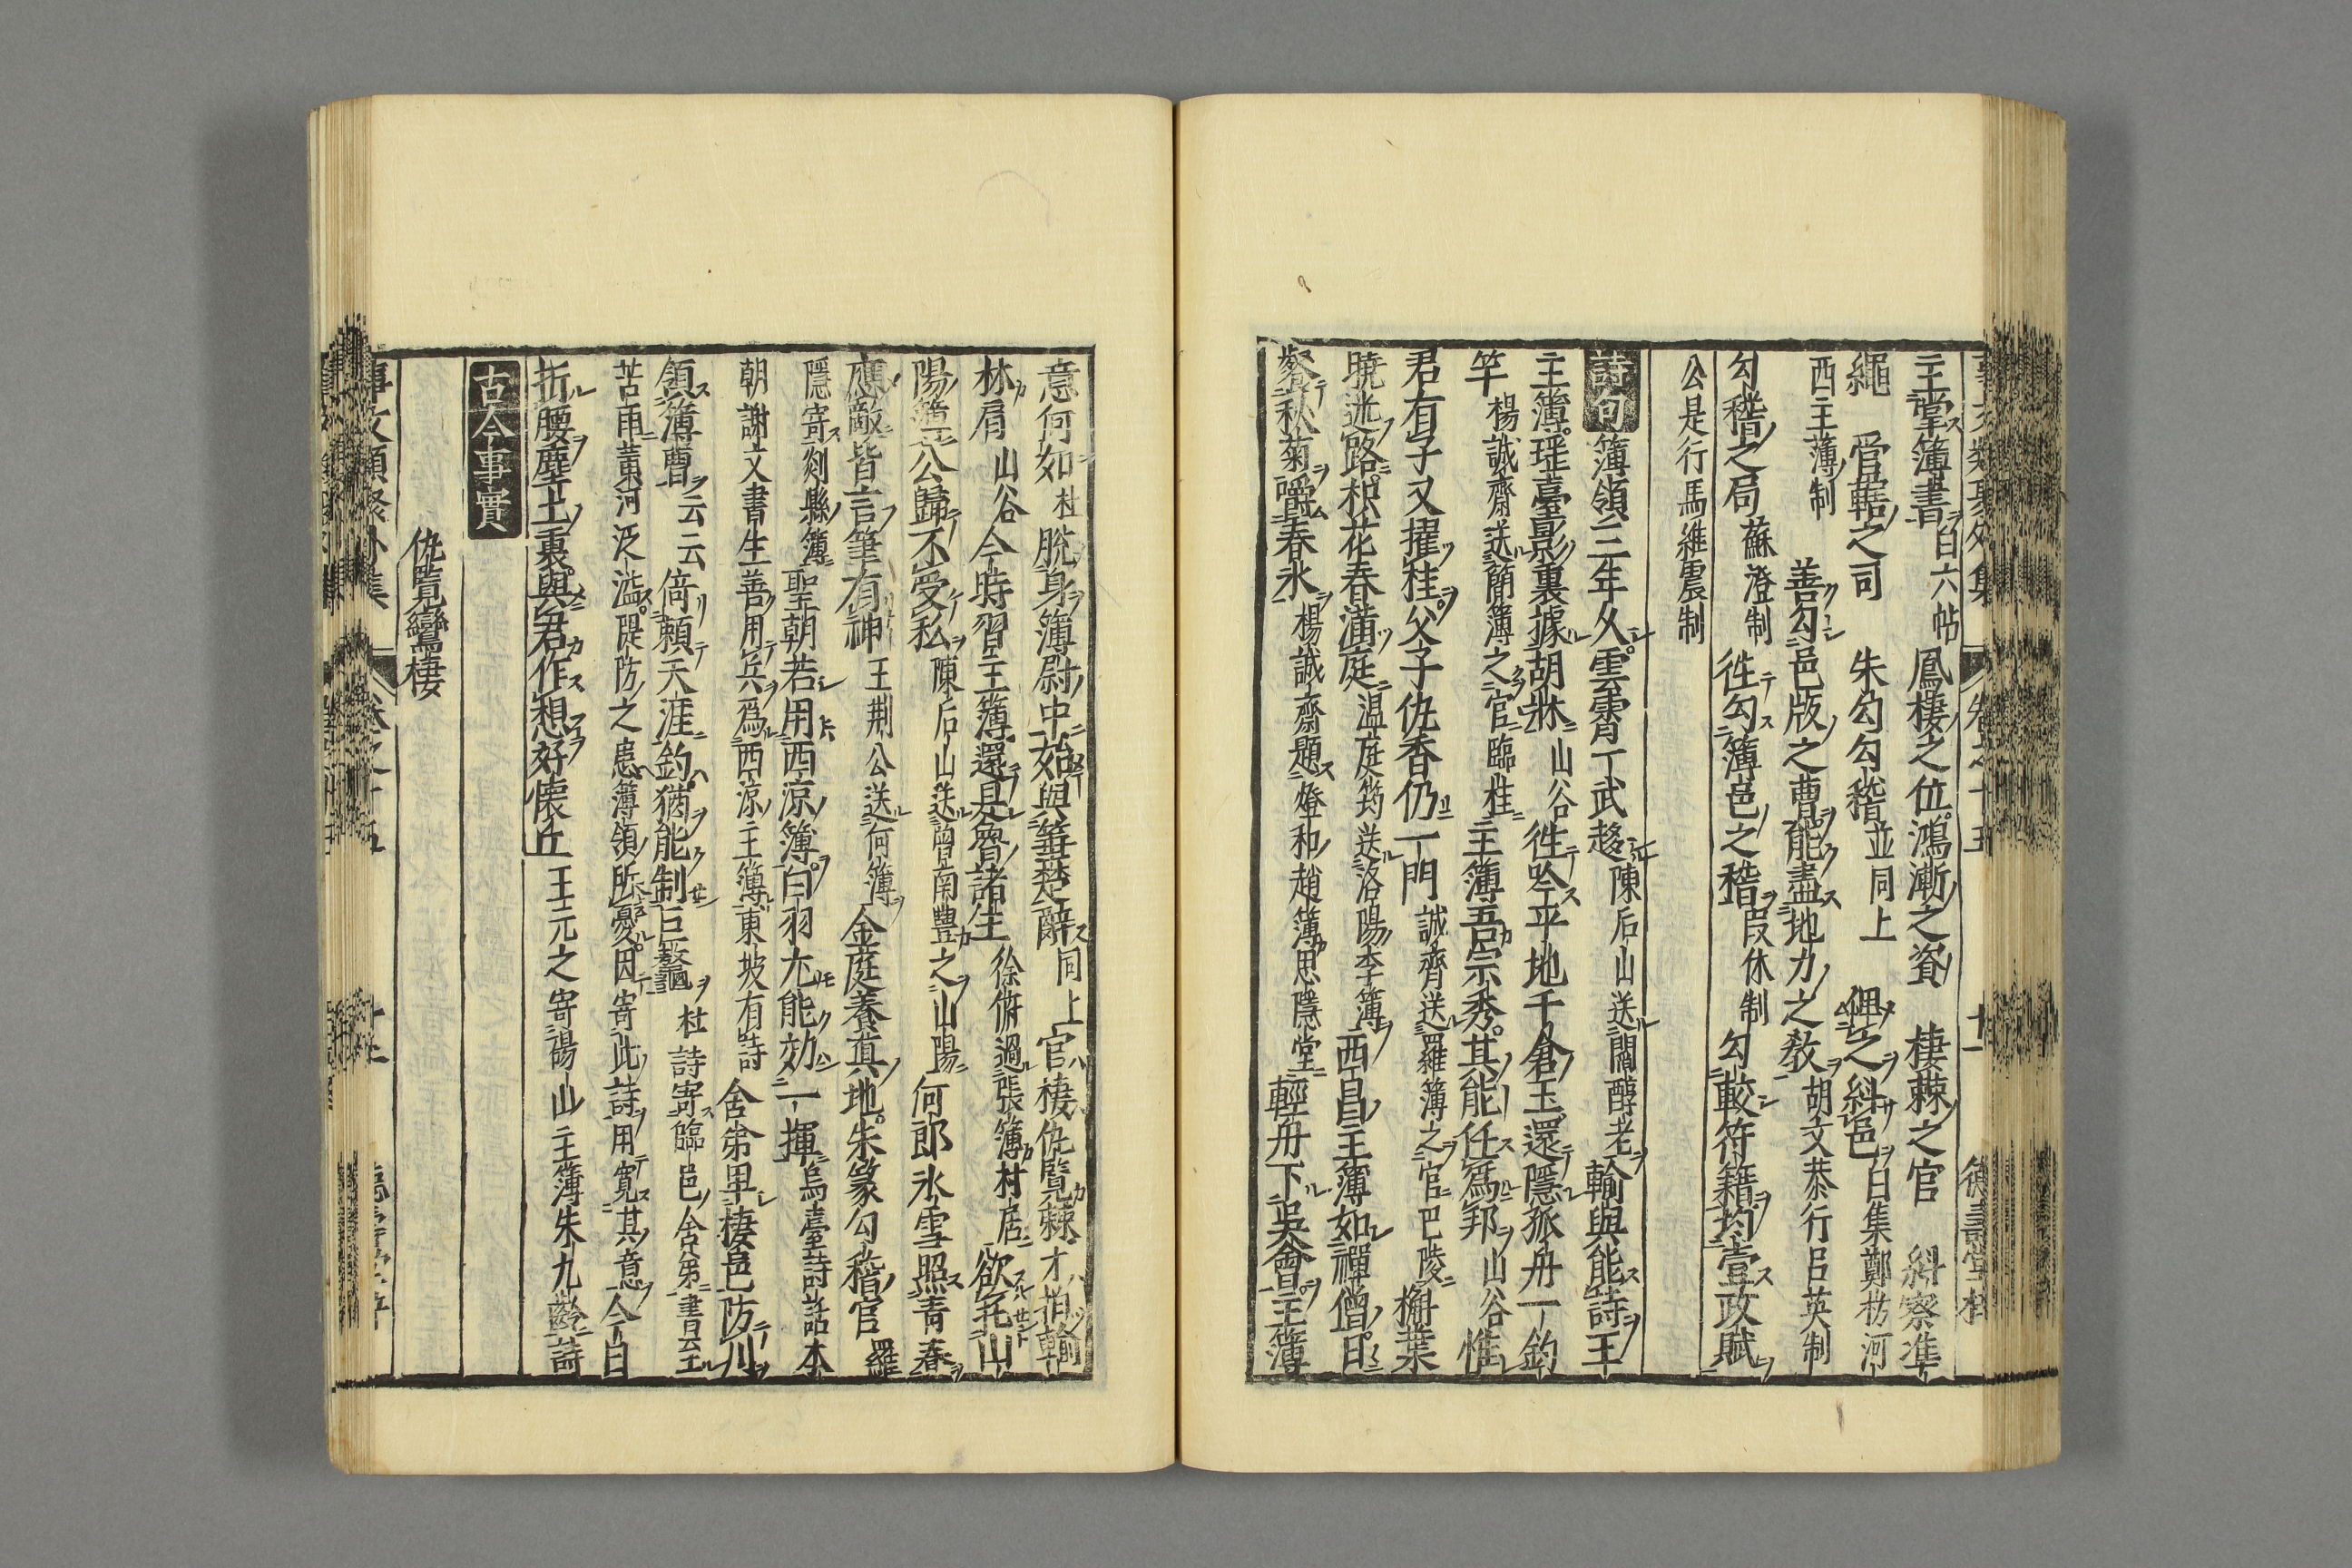 主掌簿書白六帖鳳棲之位鴻漸之資棲棘之官糾察準
繩管轄之司朱勾勾稽並同上俾之糾邑白集鄭枋河
西主薄制善勾邑版之曹能盡地力之敎胡文恭行呂英制
勾稽之局蘇澄制徃勾簿邑之稽叚休制勾較符籍均壹政賦
公是行馬維震制
詩句簿領三年久雲霄一武趍陳后山送閻醇老輸與能詩王
主簿瑶臺影裏據胡牀山谷徃吟平地千倉玉還隱孤舟一釣
竿楊誠齋送簡簿之官臨桂主簿吾宗秀其能任爲邦山谷惟
君有子又擢桂父子仇香仍一門誠齊送羅簿之官巴陵檞葉
曉迷路枳花春滿庭温庭筠送洛陽李簿西昌主薄如禪僧日
餐秋菊嚼春氷楊誠齋題澄和趙簿思隱堂輕舟下吳會主簿
意何如杜脫身簿尉中始與箠楚辭同上官棲仇覽棘才拍輸
林肩山谷今時習主薄還是魯諸生徐俯過張簿村居欲託山
陽簿公歸不受私陳后山送曾南豊之山陽何郎氷雪照青春
應敵皆言筆有神王荆公送何簿金庭養眞地朱篆勾稽官羅
隱寄剡縣簿聖朝若用西涼簿白羽尢能効一揮烏臺詩話本
朝謝文書生善用兵爲西涼主簿東坡有詩舍弟卑棲邑防川
領簿曹云云倚賴天涯釣猶能制巨鼇杜詩寄臨邑舍弟書至
苦雨黄河泛溢隄防之患簿領所憂因寄此詩用寬其意今日
折腰塵土裏與君作想好懐丘王元之寄碭山主薄朱九齡詩
古今事實
仇覽鸞棲
事文類聚外集 卷之十五